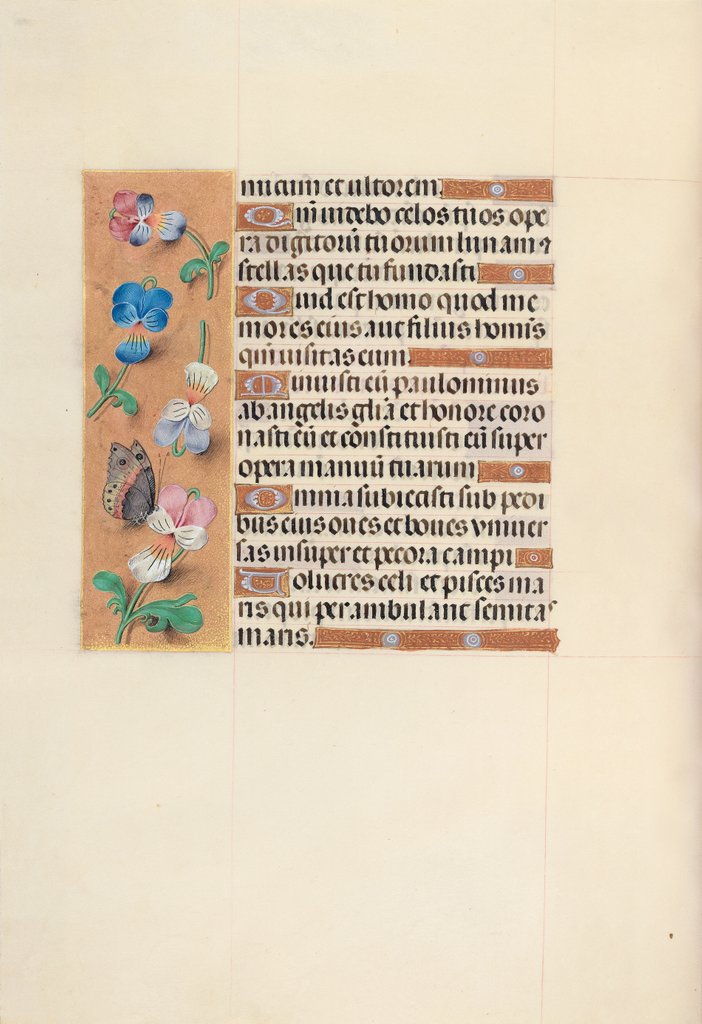 micum et ultorem.
Qm̄ uidebo celos tuos ope
ra digitorū tuorum lunam ⁊
stellas que tu fundasti.
Quid est homo quod me
mores eius aut filius homīs
qm̄ uisitas eum.
Minuisti eū paulominus
ab angelis glīa et honore coro
nasti eū et constituisti eū super
opera manuū tuarum.
Omnia subiecisti sub pedi
bus eius oues et boues vniuer
sas insuper et pecora campi.
Volucres celi et pisces ma
ris qui perambulant semitas
maris.